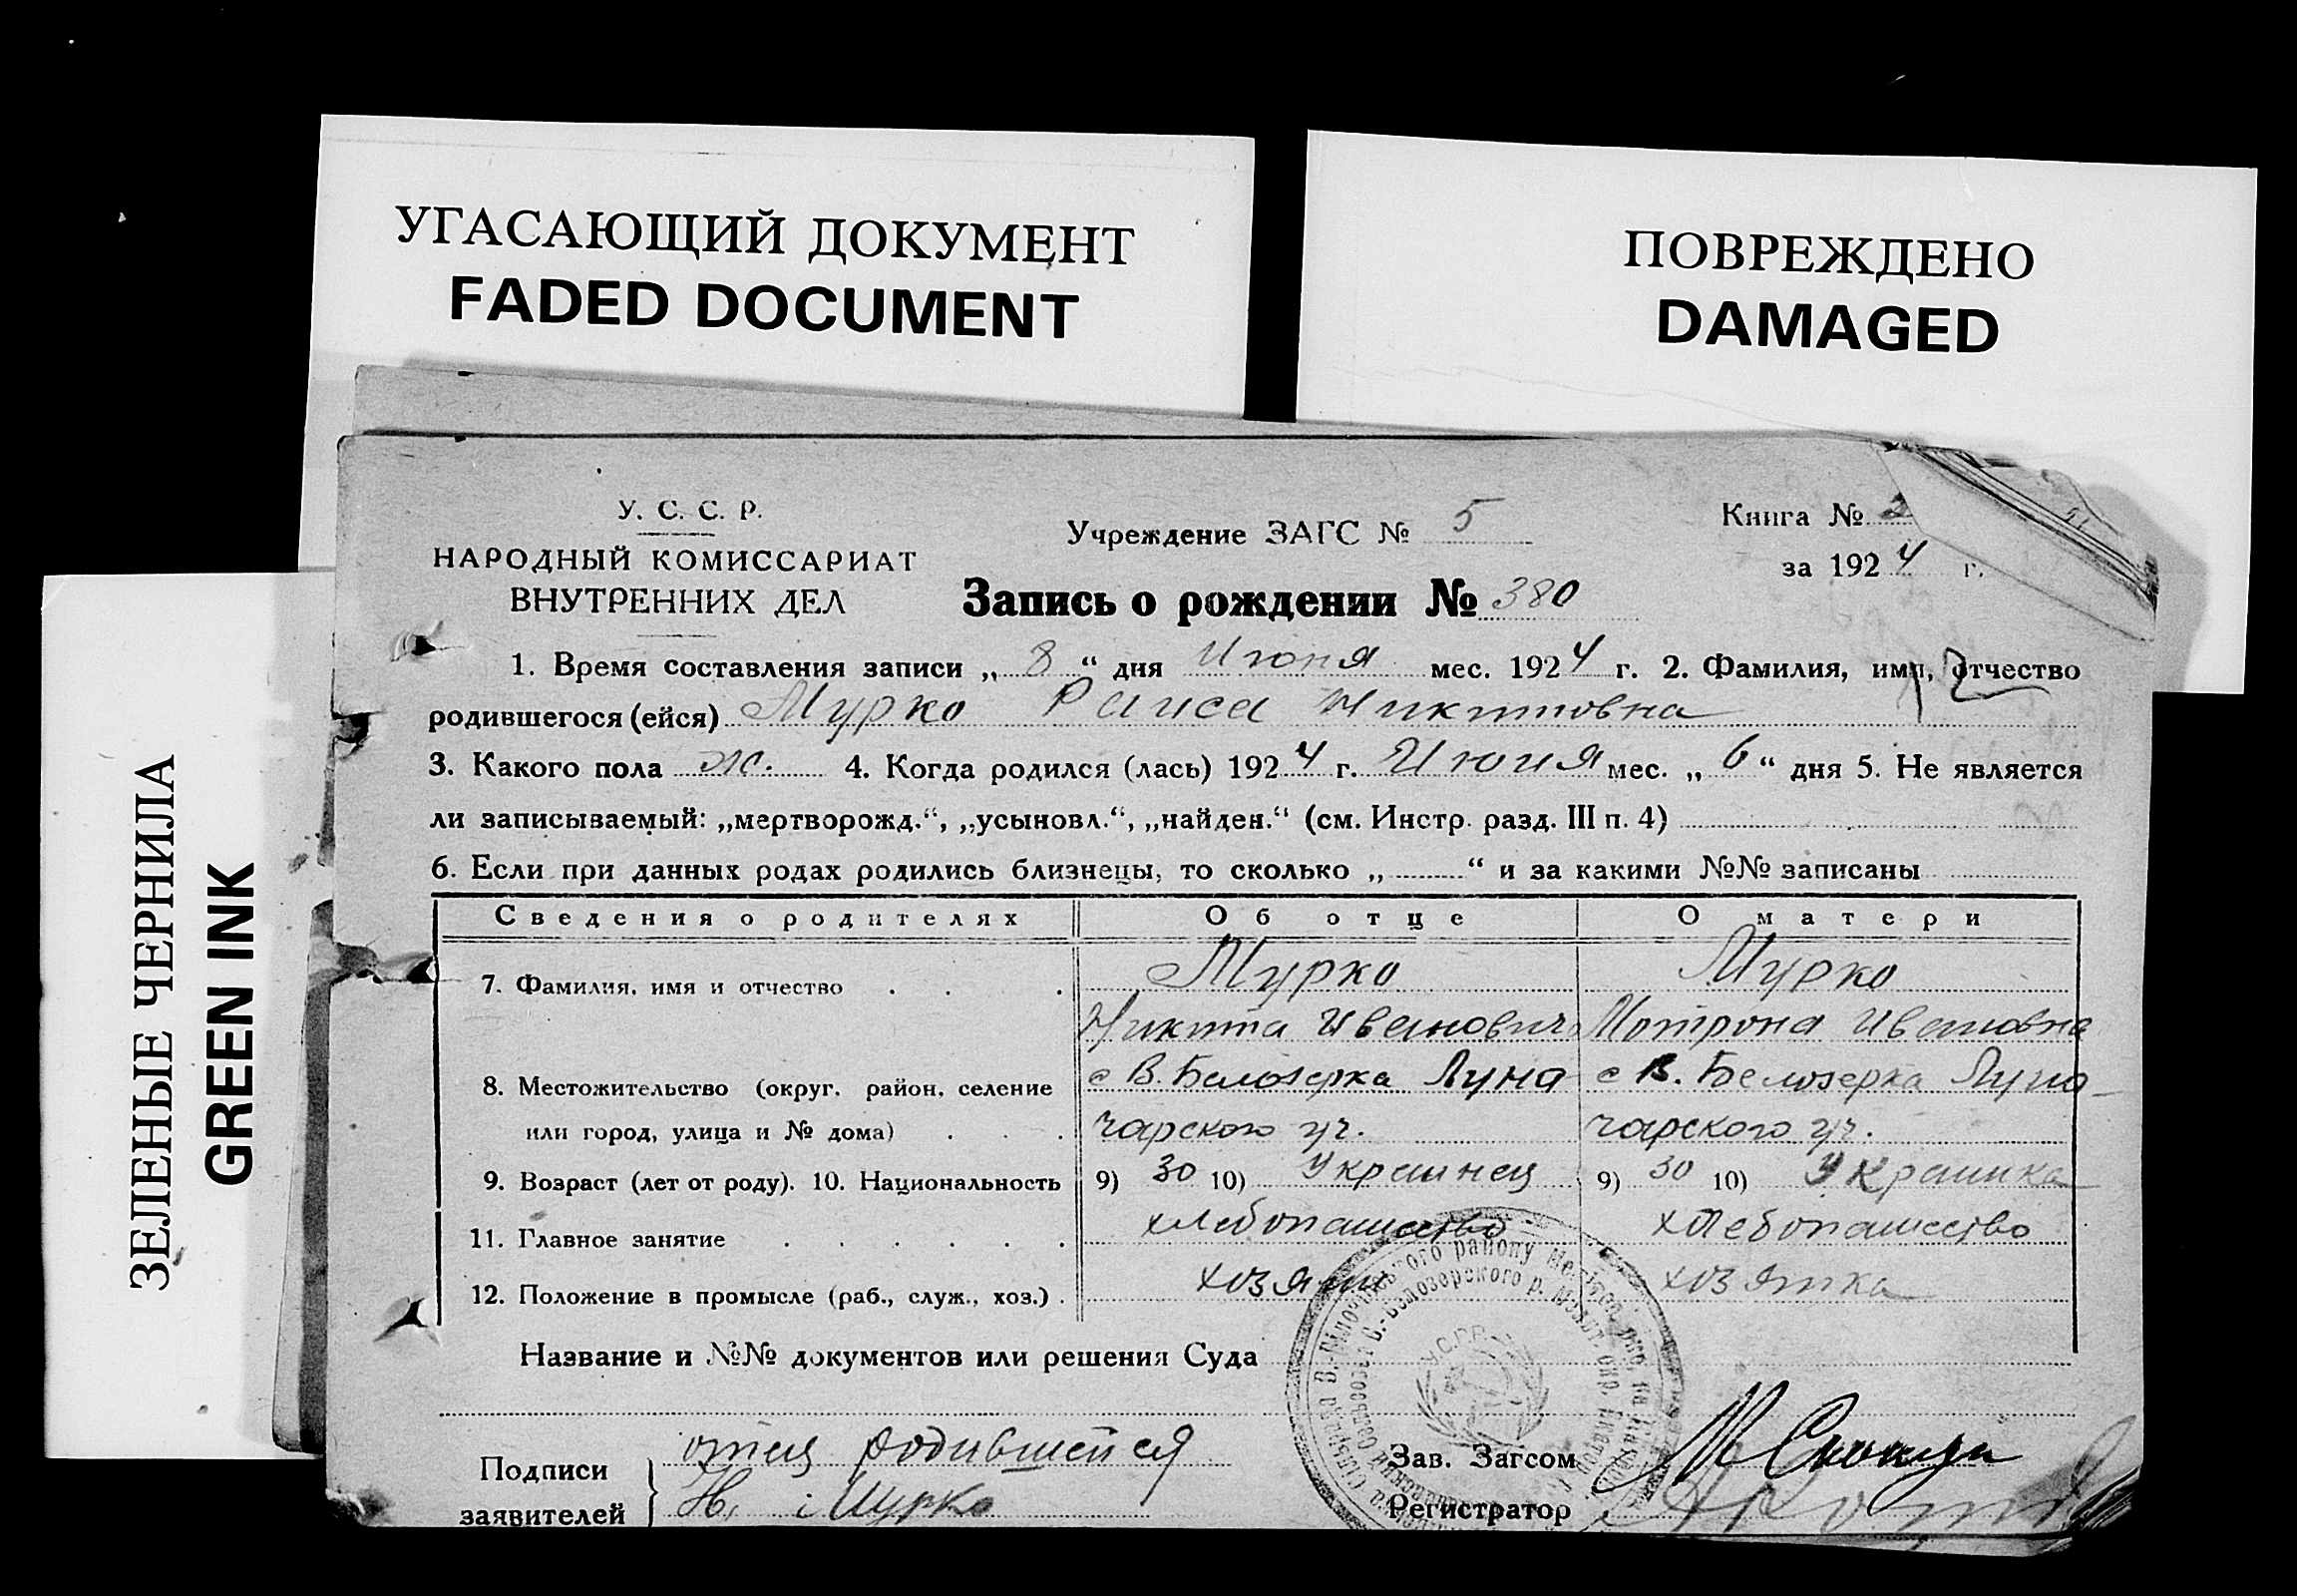 УГАСАЮЩИЙ ДОКУМЕНТ
FADED DOCUMENT
ПОВРЕЖДЕНО
DAMAGED
ЗЕЛЕНЫЕ ЧЕРНИЛА
GREEN INK
У. С. С. Р.
НАРОДНЫЙ КОМИССАРИАТ
ВНУТРЕННИХ ДЕЛ
Учреждение ЗАГС № 5
Книга № 2
за 1924 г.
Запись о рождении № 380
1. Время составления записи „ 8 “ дня Июня мес. 1924 г. 2. Фамилия, имя, отчество
родившегося (ейся) Мурко Раиса Никитовна
3. Какого пола ж. 4. Когда родился (лась) 1924 г. Июня мес. „ 6 “ дня 5. Не является
ли записываемый: „мертворожд.“, „усыновл.“, „найден.“ (см. Инстр. разд. III п. 4)
6. Если при данных родах родились близнецы, то сколько „ “ и за какими №№ записаны
Сведения о родителях Об отце О матери
7. Фамилия, имя и отчество Мурко Мурко
Никита Иванович Мотрона Ивановна
8. Местожительство (округ, район, селение с В. Белозерка Луна с В. Белозерка Луна
или город, улица и № дома) чарского уч. чарского уч.
9. Возраст (лет от роду). 10. Национальность 9) 30 10) Украинец 9) 30 10) Украинка
11. Главное занятие хлебопашество хлебопашество
12. Положение в промысле (раб., служ., хоз.) хозяин хозяйка
Название и №№ документов или решения Суда
У.С.Р.Р.
Подписи заявителей
отец родившейся
Н. Мурко
Зав. Загсом
Регистратор